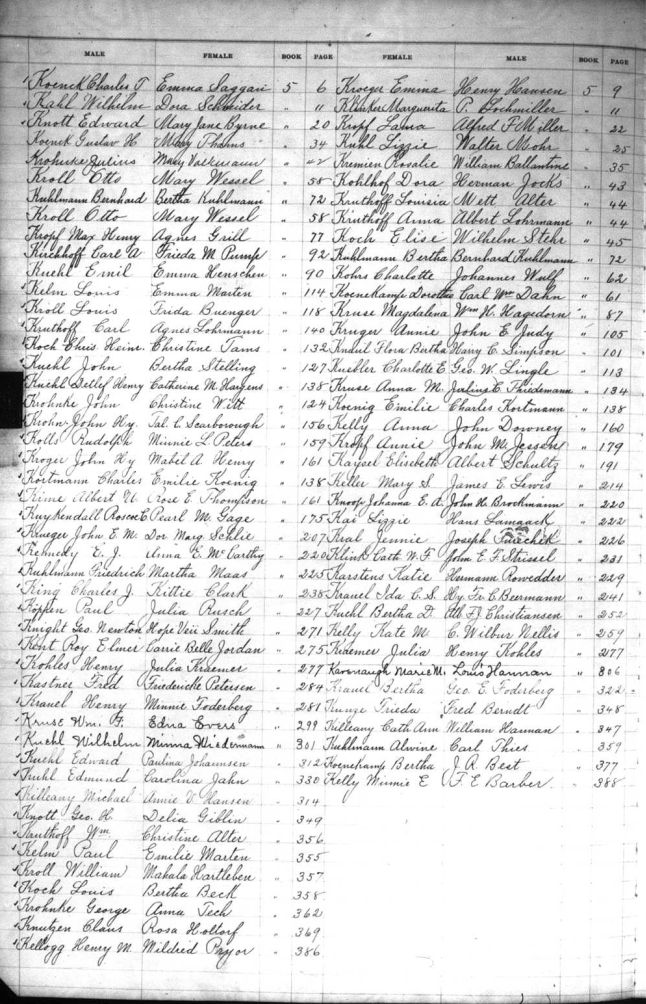 MALE FEMALE BOOK PAGE FEMALE MALE BOOK PAGE
Koenck Charles T Emma Saggau 5 6 Kroeger Emma Henry Hansen 5 9
Kahl Wilhelm Dora Schneider " 11 Klinker Marguerita P. Lochmiller " 11
Knott Edward Mary Jane Byrne " 20 Kropf Lama Alfred F. Miller " 22
Koenck Gustav H Mary Thahns " 34 Kuhl Lizzie Walter Mohr " 25
Krohnke Julius Mary Volkmann " 42 Kremien Rosalie William Ballantine " 35
Kroll Otto Mary Wessel " 58 Kohlhof Dora Herman Jocks " 43
Kuhlmann Bernhard Bertha Kuhlmann " 72 Kruthoff Louisia Mett Alter " 44
Kroll Otto Mary Wessel " 58 Kruthoff Anna Albert Lohrmann " 44
Kropf Max Henry Agnes Grill " 77 Koch Elise Wilhelm Stehr " 45
Kirchhoff Carl A Frieda M. Pump " 92 Kuhlmann Bertha Bernhard Kuhlmann " 72
Kuehl Emil Emma Henschen " 90 Kohrs Charlotte Johannes Wulf " 62
Kelm Louis Emma Marten " 114 Koenekamp Dorothea Carl Wm Dahn " 61
Kroll Louis Frida Buenger " 118 Kruse Magdalena Wm H. Hagedorn " 87
Kruthoff Carl Agnes Lohrmann " 140 Kruger Annie John E Judy " 105
Koch Chris. Heinr. Christine Tams " 132 Knaul Flora Bertha Harry C. Simpson " 101
Kuehl John Bertha Stelling " 127 Kuebler Charlotte E Geo. W. Lingle " 113
Kuehl Detlef Henry Catherine M. Hargens " 138 Kruse Anna M. Julius E. Thiedemann " 134
Krohnke John Christine Witt " 124 Koenig Emilie Charles Kortmann " 138
Krohn John Hy. Sal. C. Scarborough " 156 Kelly Anna John Downey " 160
Kolls Rudolph Minnie L Peters " 159 Kropf Annie John M. Jessen " 179
Kroger John Hy Mabel A. Henry " 161 Kaysel Elisabeth Albert Schultz " 191
Kortmann Charles Emilie Koenig " 138 Keller Mary S. James E. Lewis " 214
Krime Albert N. Rose E. Thompson " 161 Knoop Johanna E. A. John H. Brockmann " 220
Kuykendall Roscoe C Pearl M. Gage " 175 Kai Lizzie Hans Lamaack " 222
Krueger John E. M. Dor. Marg. Schlie " 207 Kral Jennie Joseph " 226
Kennedy E. J. Anna E. McCarthy " 220 Klink Cath. W. F. John E. F. Strissel " 231
Kuhlmann Friedrich Martha Maas " 225 Karstens Katie Hermann Rowedder " 229
King Charles J. Kittie Clark " 236 Kranel Ida C. S. Hy. Fr. C. Bermann " 241
Köppen Paul Julia Rusch " 227 Kuehl Bertha D. Alb. F. J. Christiansen " 252
Knight Geo. Newton Hope Smith " 271 Kelly Kate M C. Wilbur Nellis " 259
Kent Roy Elmer Carrie Belle Jordan " 275 Kraemer Julia Henry Kohles " 277
Kohles Henry Julia Kraemer " 277 Kavenaugh Marie M. Louis Hannan " 306
Kastner Fred Friedericke Petersen " 284 Kranel Bertha Geo. E. Foderberg " 322
Kranel Henry Minnie Foderberg " 281 Kunze Frieda Fred Berndt " 348
Kruse Wm. F. Edna Evers " 299 Killeany Cath. Ann William Hannan " 347
Kuehl Wilhelm Minna Wiedermann " 301 Kuhlmann Alwine Carl Thies " 359
Kuehl Edward Paulina Johannsen " 312 Koenekamp Bertha J. R. Best " 377
Kuhl Edmund Carolina Jahn " 330 Kelly Minnie E F. E. Barber " 388
Killeany Michael Annie V Hansen " 314
Knott Geo. H. Delia Giblin " 349
Kruthoff Wm. Christine Alter " 356
Kelm Paul Emilie Marten " 355
Kroll William Mahala Hartleben " 357
Koch Louis Bertha Beck " 358
Krohnke George Anna Tech " 362
Knutzen Claus Rosa Holtorf " 369
Kellogg Henry M. Mildred Pryor " 386